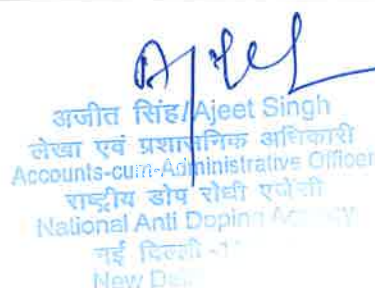 अजीत सिंह/Ajeet Singh
लेखा एवं प्रशासनिक अधिकारी
Accounts-cum-Administrative Officer
राष्ट्रीय डोप रोधी एजेंसी
National Anti Doping Agency
नई दिल्ली -1
New Delhi